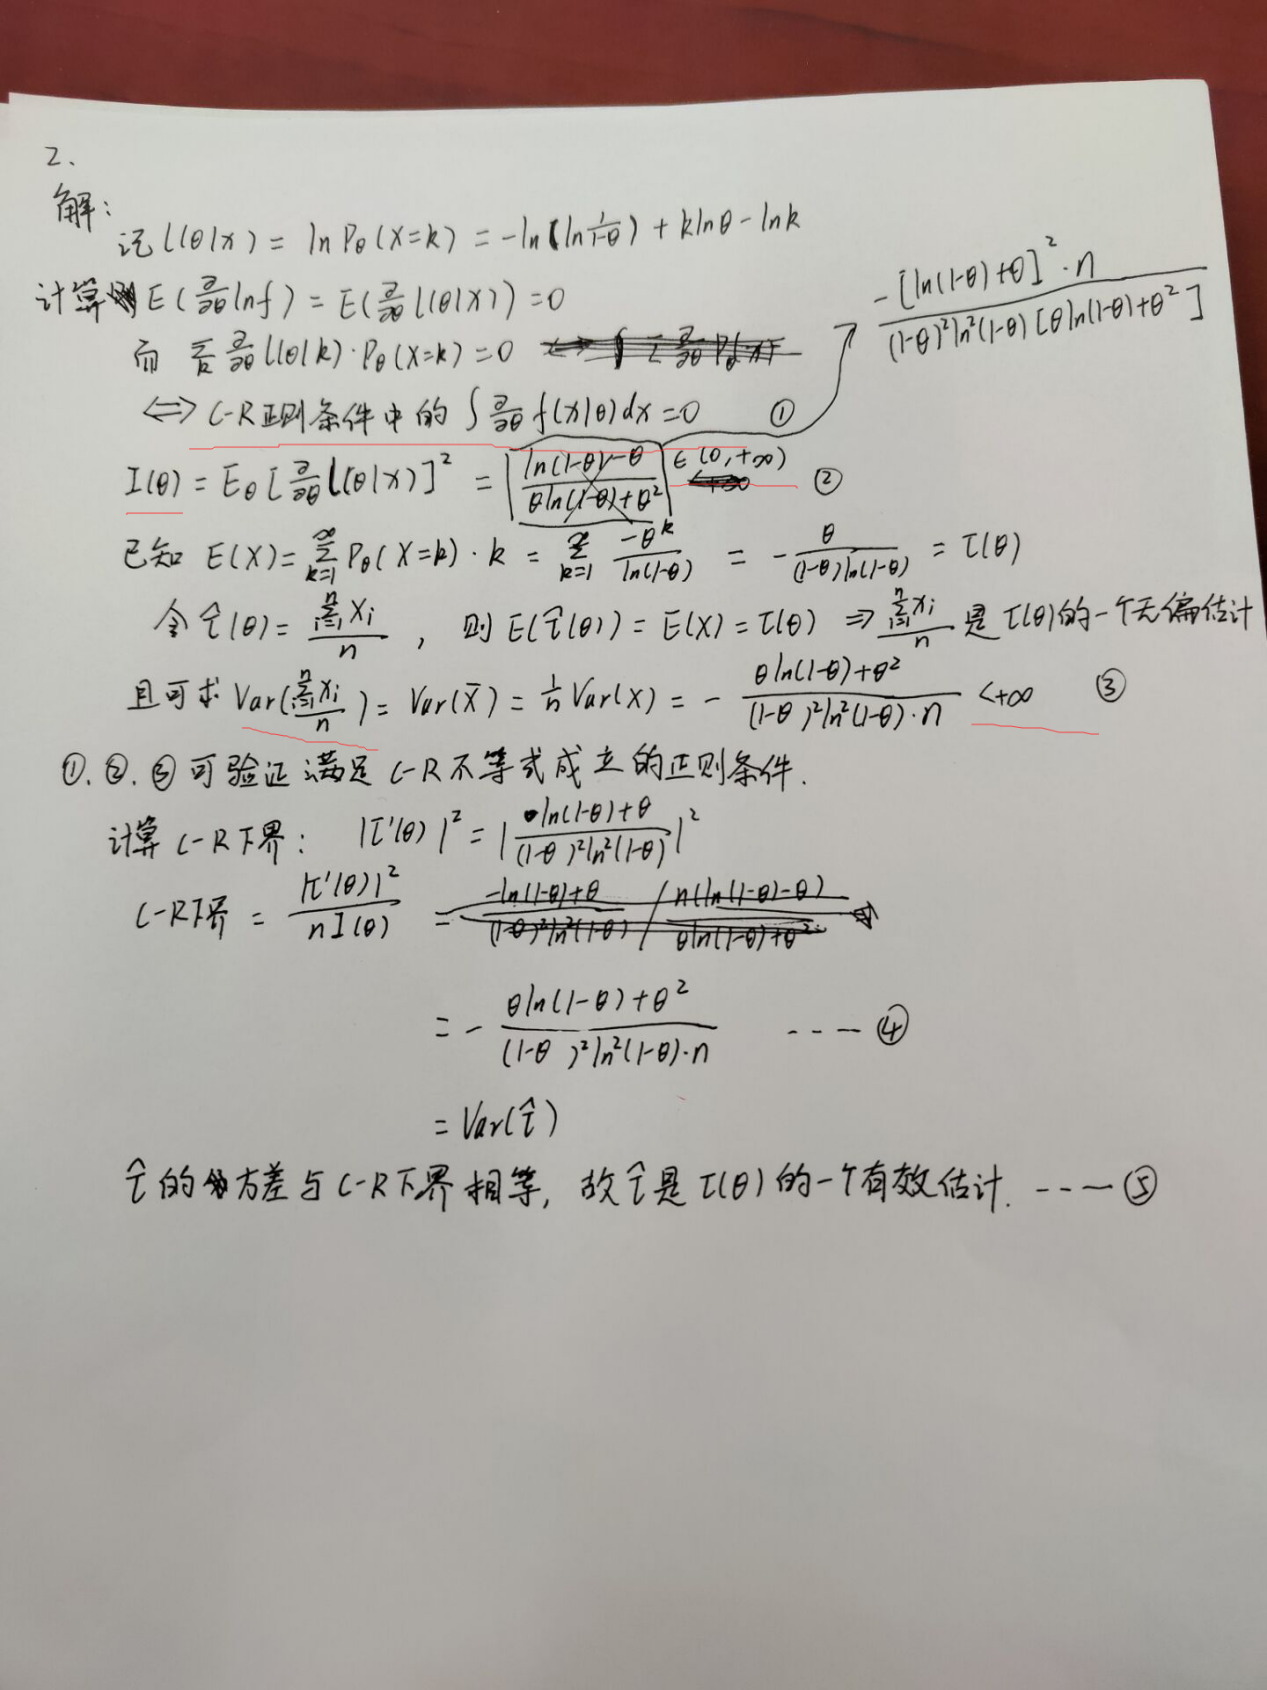 2.
解:
记 l(θ|x) = ln Pθ(X=k) = -ln(ln 1/(1-θ)) + klnθ - lnk
计算 E(∂/∂θ lnf) = E(∂/∂θ l(θ|x)) = 0
而 ∂/∂θ l(θ|k)·Pθ(X=k) = 0
⟺ C-R正则条件中的 ∫ ∂/∂θ f(x|θ)dx = 0 ①
-[ln(1-θ)+θ]²·n / (1-θ)²ln²(1-θ)[θln(1-θ)+θ²]
I(θ) = Eθ[∂/∂θ l(θ|x)]² = ln(1-θ)-θ / θln(1-θ)+θ² ∈(0,+∞) ②
已知 E(X) = ∑_{k=1}^{∞} Pθ(X=k)·k = ∑_{k=1}^{∞} -θ^k/ln(1-θ) = - θ/((1-θ)ln(1-θ)) = τ(θ)
令 τ̂(θ) = ∑_{i=1}^{n} Xi / n , 则 E(τ̂(θ)) = E(X) = τ(θ) ⇒ ∑_{i=1}^{n} Xi / n 是 τ(θ)的一个无偏估计
且可求 Var(∑_{i=1}^{n} Xi / n) = Var(X̄) = 1/n Var(X) = - (θln(1-θ)+θ²)/((1-θ)²ln²(1-θ)·n) <+∞ ③
①.②.③可验证满足 C-R不等式成立的正则条件.
计算 C-R下界: |τ'(θ)|² = |(ln(1-θ)+θ)/((1-θ)²ln²(1-θ))|²
C-R下界 = |τ'(θ)|² / nI(θ) = -ln(1-θ)+θ / (1-θ)²ln²(1-θ) / n(ln(1-θ)-θ) / θln(1-θ)+θ²
= - (θln(1-θ)+θ²)/((1-θ)²ln²(1-θ)·n) ---- ④
= Var(τ̂)
τ̂的方差与C-R下界相等, 故τ̂是τ(θ)的一个有效估计. ---- ⑤